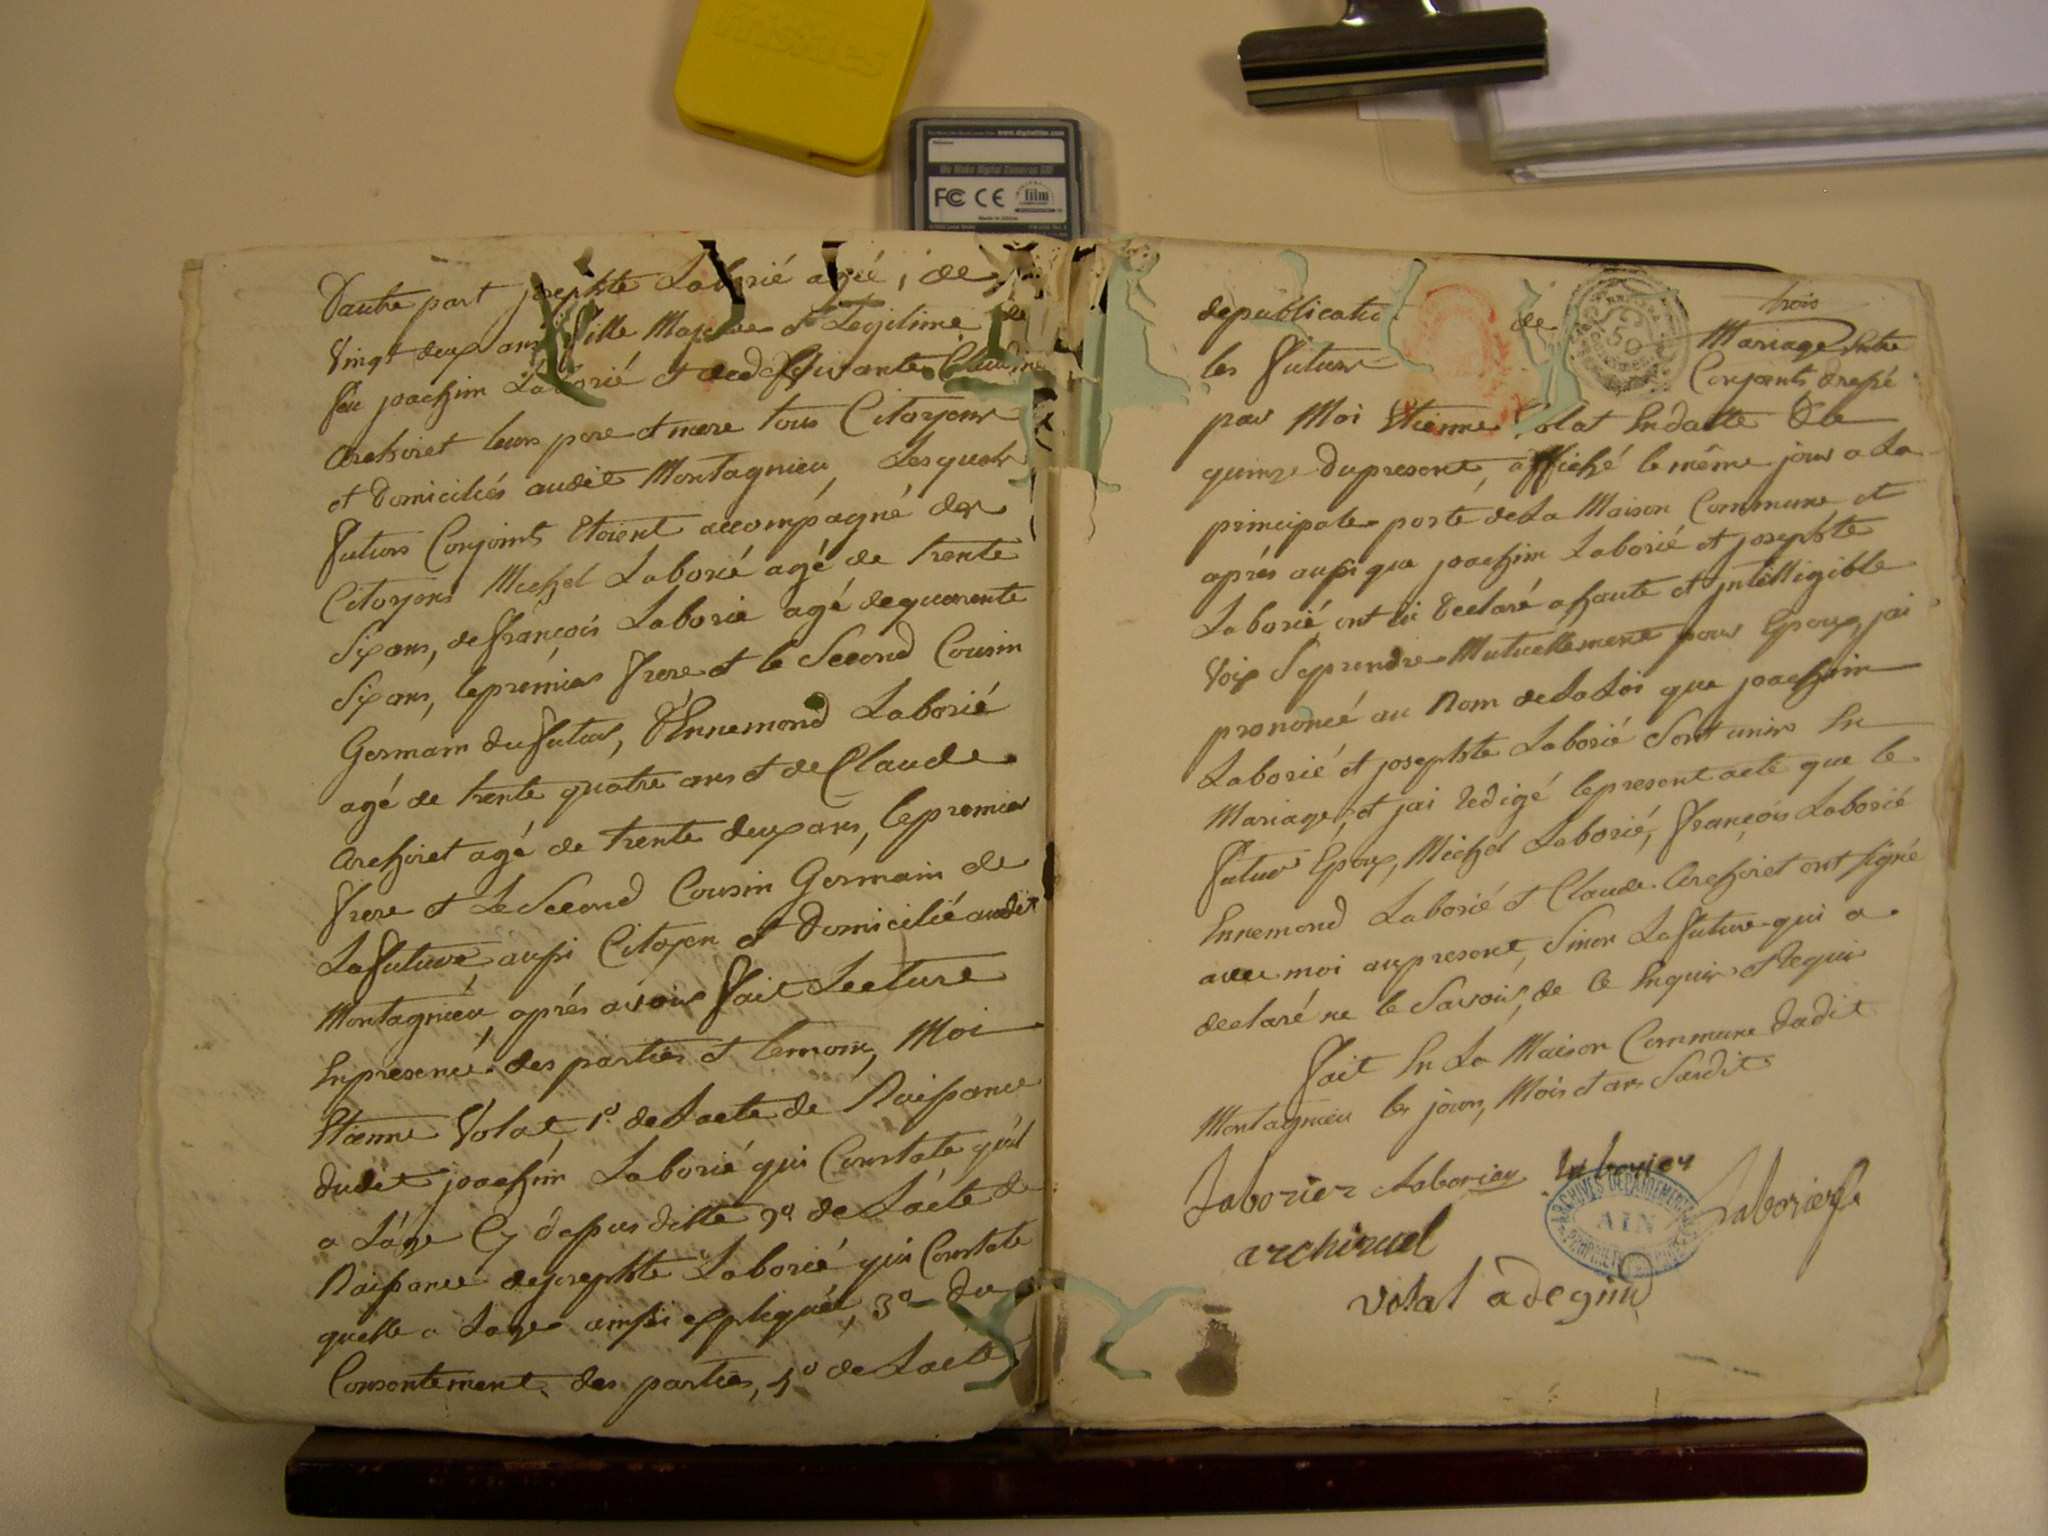 Friskies
www.digitalfilm.com
We Make Digital Cameras Fly
FC CE film
D'autre part josephte Laborié agée, de
Vingt deux ans fille Majeure et Legitime de
feu joachim Laborié et de Vivante Claudine
Archiret leurs pere et mere tous Citoyens
et Domiciliés audit Montagnieu, Lesquels
futurs Conjoints Etoient accompagné des
Citoyens Michel Laborié agé de trente
Six ans, de françois Laborié agé de quarente
Six ans, le prémier frere et le Second Cousin
Germain du futur, D'Ennemond Laborié
agé de trente quatre ans et de Claude
Archiret agé de trente deux ans, le premier
frere et Le Second Cousin Germain de
La future aussi Citoyen et Domicilié audit
Montagnieu, aprés avoir fait Lecture
En presence des parties et temoins, Moi
Etienne Volat, 1º de L'acte de Naissance
dudit joachim Laborié qui Constate qu'il
a L'age Cy depus ditte 2º de L'acte de
Naissance de josephte Laborié qui Constate
quelle a Lage aussi expliqué, 3º du
Consentement des parties, 4º de L'acte
de publication de trois
les futurs Mariage Entre
Conjoints dressé
par Moi Etienne Volat En datte du
quinze du present, affiché le même jour a La
principale porte de La Maison Commune et
aprés aussi que joachim Laborié et josephte
Laborié ont eu Declaré a haute et intelligible
Voix Se prendre Mutuellement pour Epoux, jai
prononcé au Nom de La Loi que joachim
Laborié et josephte Laborié Sont unis En
Mariage, et jai Redigé le present acte que le
futur Epoux, Michel Laborié, françois Laborié
Ennemond Laborié et Claude Archiret ont signé
avec moi au present, Sinon La future qui a
declaré ne le Savoir, de ce Enquis et Requis
fait En La Maison Commune dudit
Montagnieu les jours, Mois et an Susdits
Laborier Laborier Laborier Laborier
archiruel
ARCHIVES DEPARTEMENTALES
AIN
volat